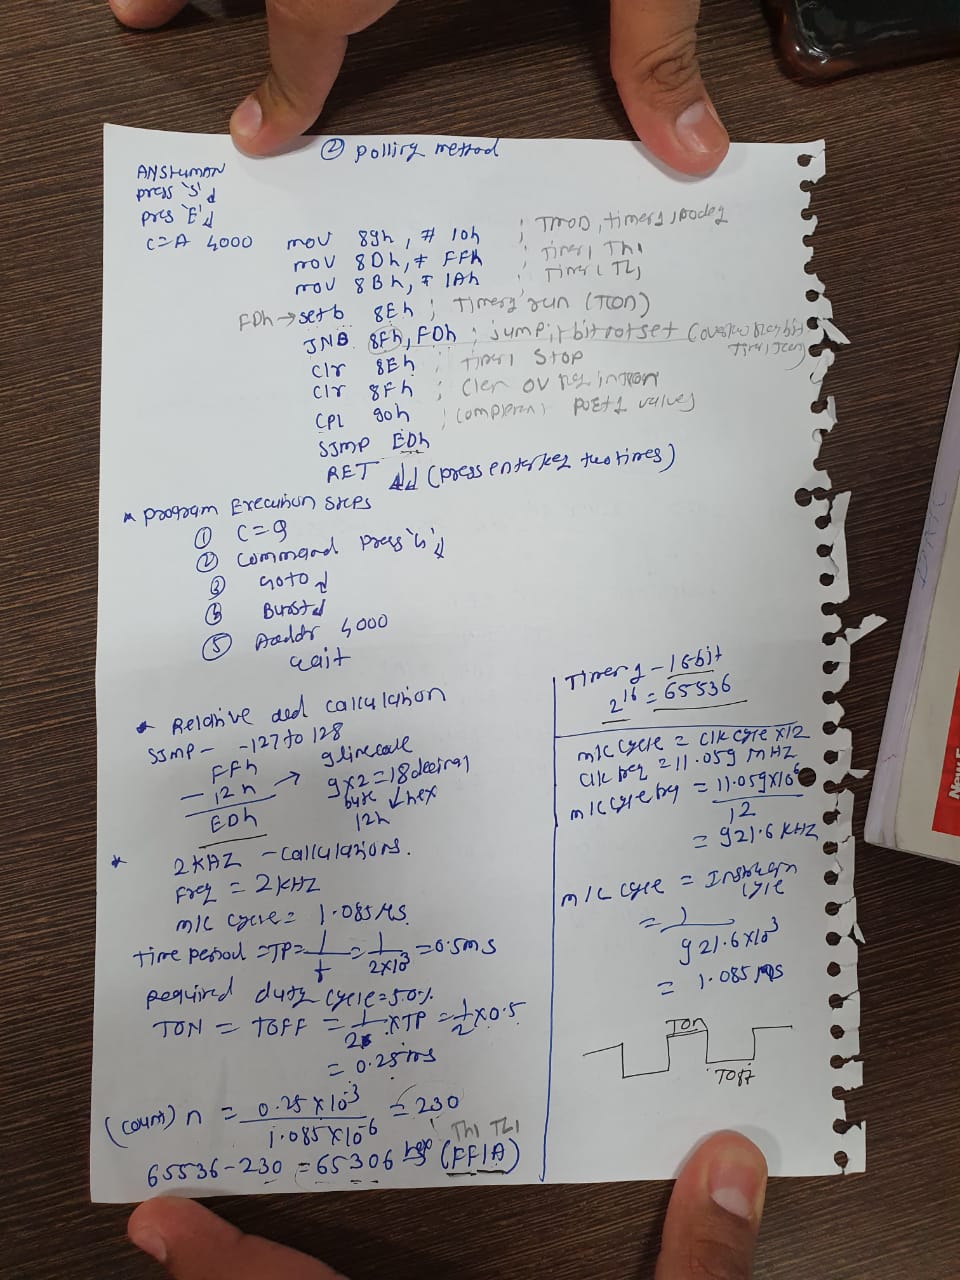 ② polling method
ANSHUMAN
press 'S' ↲
pres 'E' ↲
C=A 4000
mov 89h, # 10h ; TMOD, timer1, mode1
mov 8Dh, # FFh ; Timer1 TH1
mov 8Bh, # 1Ah ; Timer1 TL1
FDh → setb 8Eh ; Timer1 run (TON)
JNB 8Fh, FDh ; jump if bit not set
clr 8Eh ; timer1 stop
clr 8Fh ;
CPL 90h ; values
SJMP EDh
RET ↲↲ (press enter key two times)
* Program Execution steps
① C=G
② command press
③ goto ↲
④ Burst↲
⑤ Aaddr 4000
wait
* Relative add calculation
SJMP - -127 to 128
FFh
- 12h → 9 line code
EDh
9x2=18 decimal
byte ↓hex
12h
* 2KHZ - calculations.
Freq = 2KHZ
m/c cycle = 1.085 μs.
time period = TP = 1/f = 1/2x10³ = 0.5ms
required duty cycle=50%
TON = TOFF = 1/2 x TP = 1/2 x 0.5
= 0.25ms
(count) n = 0.25x10⁻³/1.085x10⁻⁶ = 230
TH1 TL1
65536-230 = 65306 hex → (FF1A)
Timer 1 - 16-bit
2¹⁶ = 65536
m/c cycle = clk cycle x12
clk freq = 11.059 MHZ
m/c cycle freq = 11.059x10⁶/12
= 921.6 KHZ
m/c cycle = Instruction cycle
= 1/921.6x10³
= 1.085 μs
TON
TOFF
New